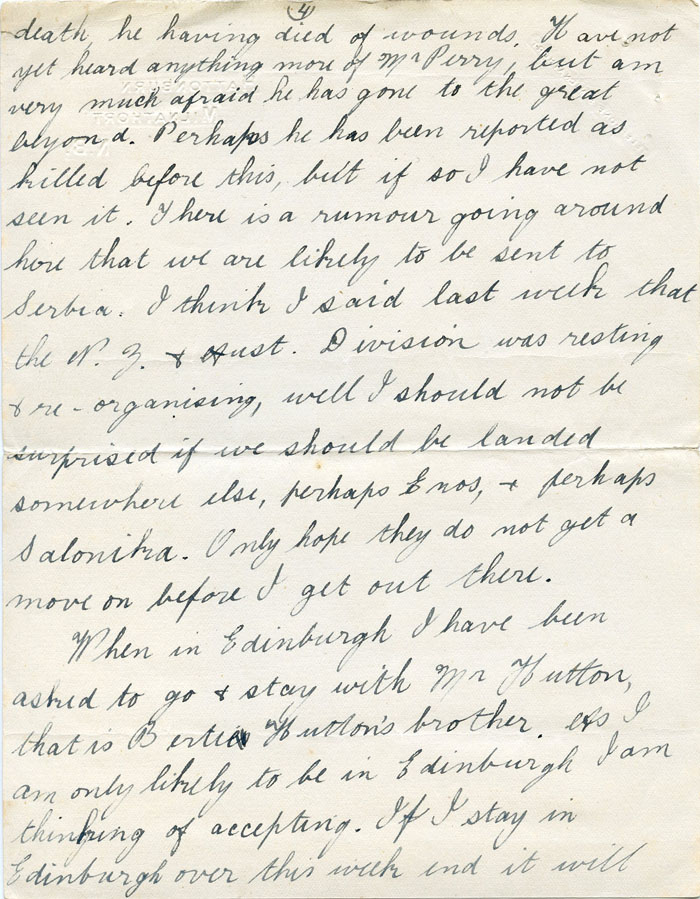 4
death he having died of wounds. Have not
yet heard anything more of Mr Perry, but am
very much afraid he has gone to the great
beyond. Perhaps he has been reported as
killed before this, but if so I have not
seen it. There is a rumour going around
here that we are likely to be sent to
Serbia. I think I said last week that
the N. Z. & Aust. Division was resting
& re-organising, well I should not be
surprised if we should be landed
somewhere else, perhaps Enos, & perhaps
Salonika. Only hope they do not get a
move on before I get out there.
When in Edinburgh I have been
asked to go & stay with Mr Hutton,
that is Bertie Hutton's brother. As I
am only likely to be in Edinburgh I am
thinking of accepting. If I stay in
Edinburgh over this week end it will